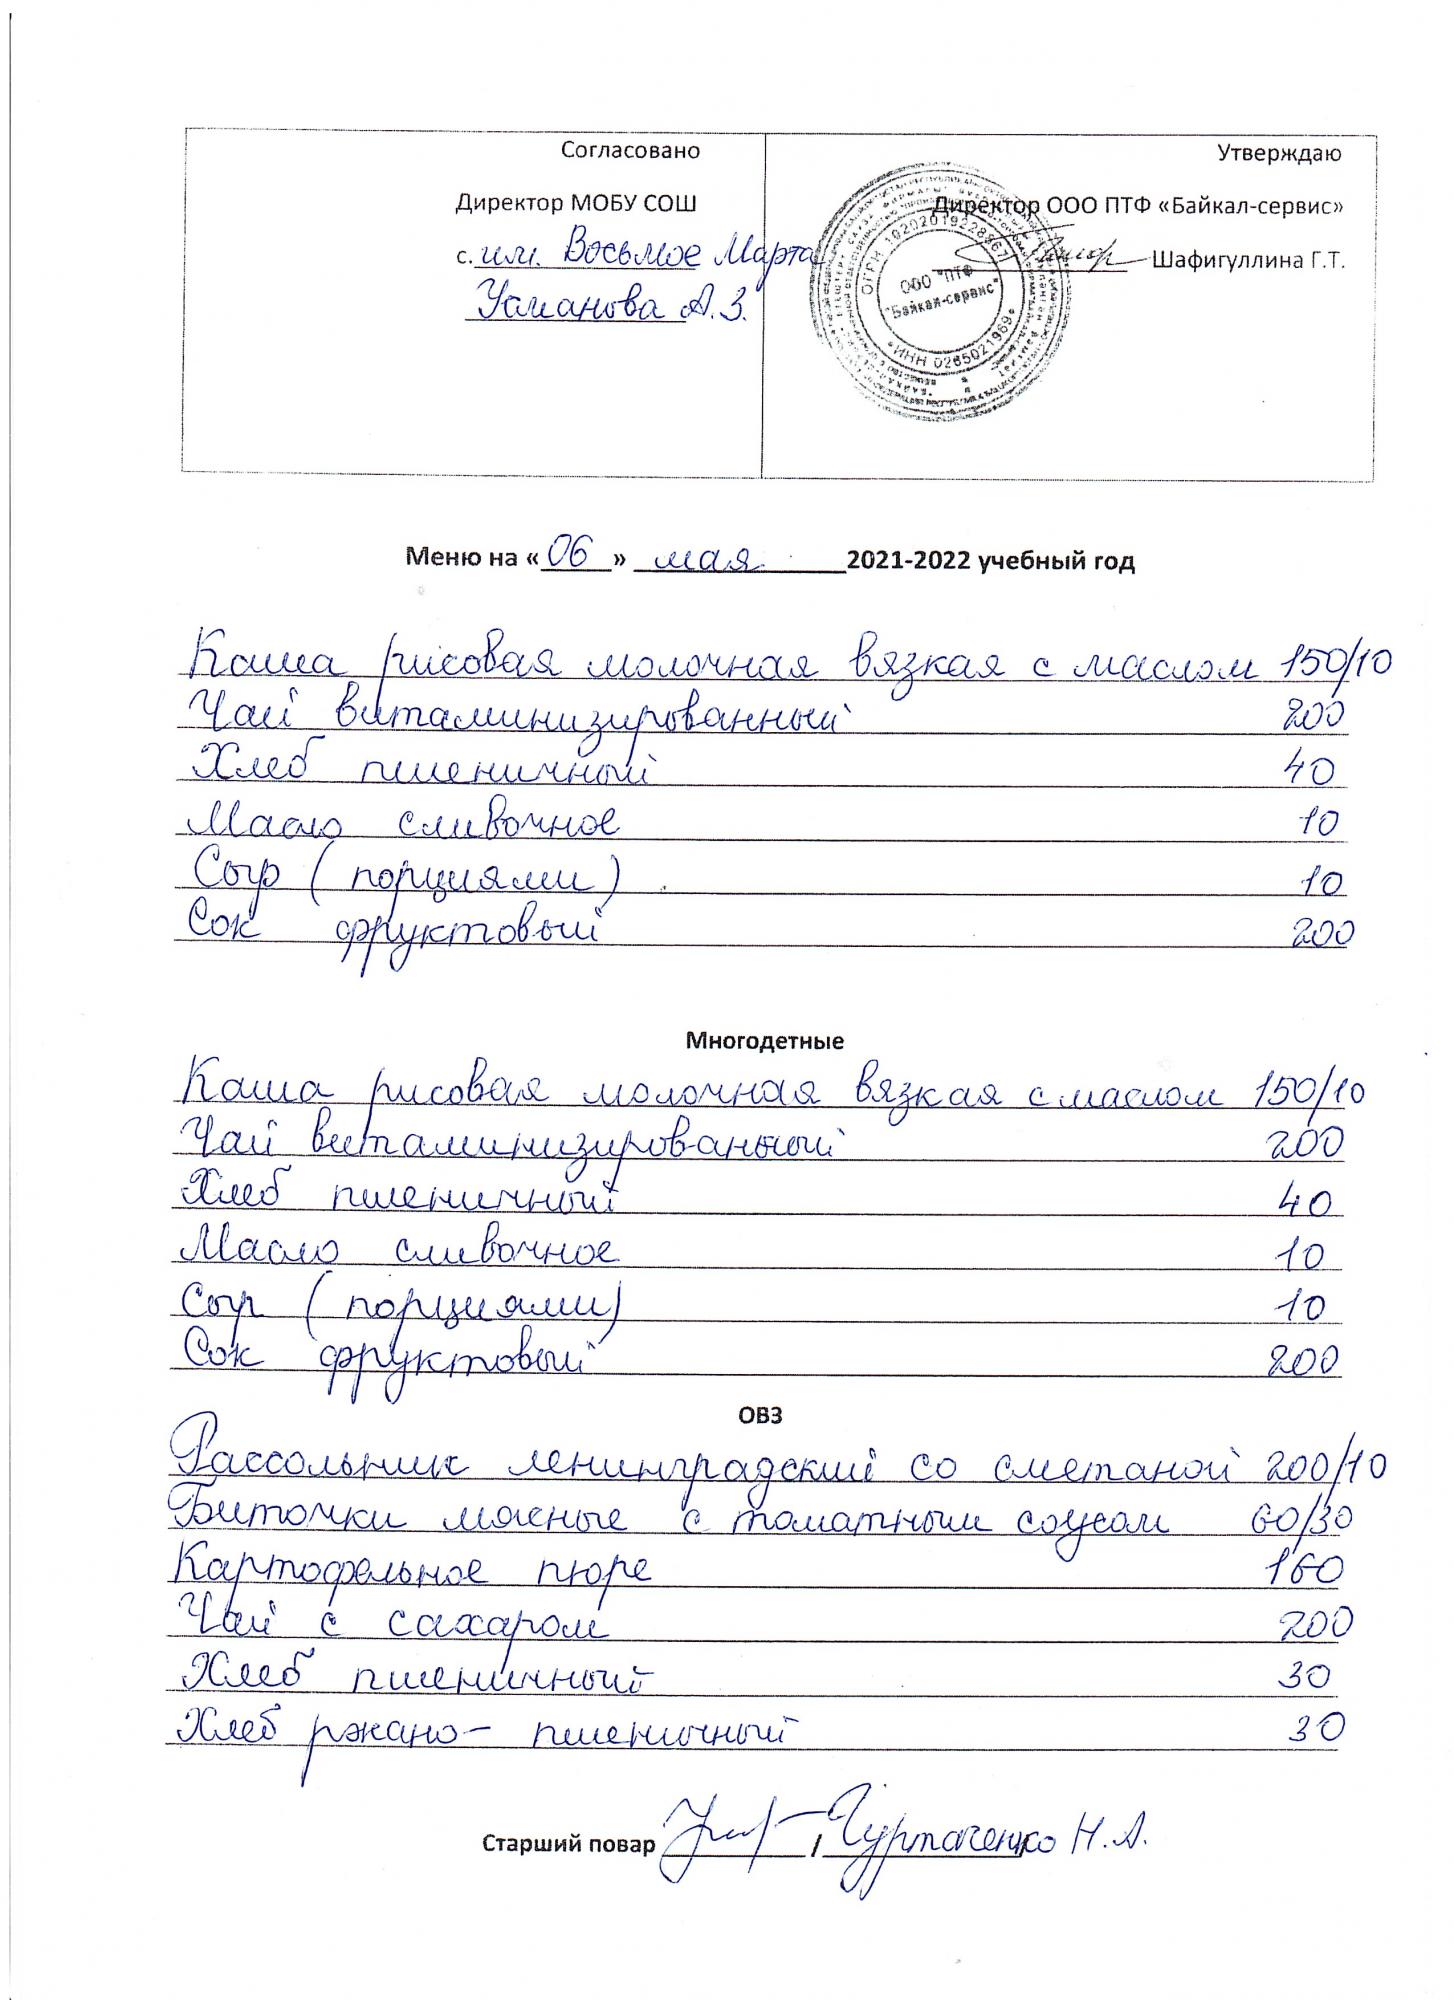 Согласовано
Директор МОБУ СОШ
с. им. Восьмое Марта
Усманова А.З.
Утверждаю
Директор ООО ПТФ «Байкал-сервис»
Шафигуллина Г.Т.
ОГРН 1020201922896
ООО "ПТФ
"Байкал-сервис"
ИНН 0265021969
Меню на «06» мая 2021-2022 учебный год
Каша рисовая молочная вязкая с маслом 150/10
Чай витаминизированный 200
Хлеб пшеничный 40
Масло сливочное 10
Сыр (порциями) 10
Сок фруктовый 200
Многодетные
Каша рисовая молочная вязкая с маслом 150/10
Чай витаминизированный 200
Хлеб пшеничный 40
Масло сливочное 10
Сыр (порциями) 10
Сок фруктовый 200
ОВЗ
Рассольник ленинградский со сметаной 200/10
Биточки мясные с томатным соусом 60/30
Картофельное пюре 160
Чай с сахаром 200
Хлеб пшеничный 30
Хлеб ржано- пшеничный 30
Старший повар / Н.А.